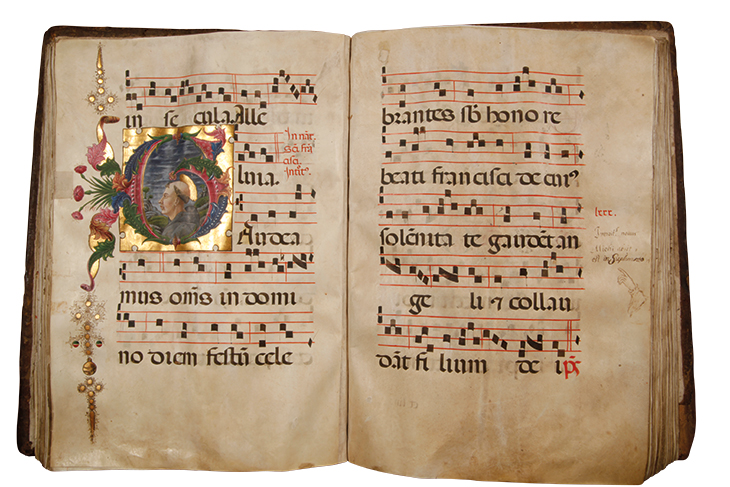 in se cula. Alle
In nat.
sci frā
cisci.
Introit.
luia.
Audea
mus om̄s in domi
no diem festū cele
brantes sb̄ hono re
beati francisci de cuiꝰ
solēnita te gaudēt an
ge li ⁊ collau
dāt fi lium de i p̄s